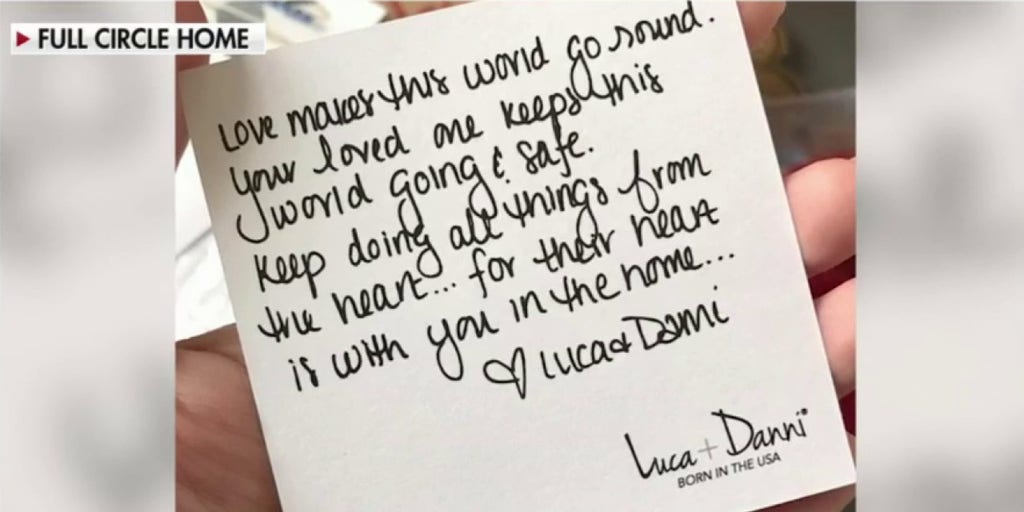 FULL CIRCLE HOME
Love makes this world go round.
your loved one keeps this
world going & safe.
Keep doing all things from
the heart... for their heart
is with you in the home...
♡ Luca & Danni
Luca + Danni®
BORN IN THE USA